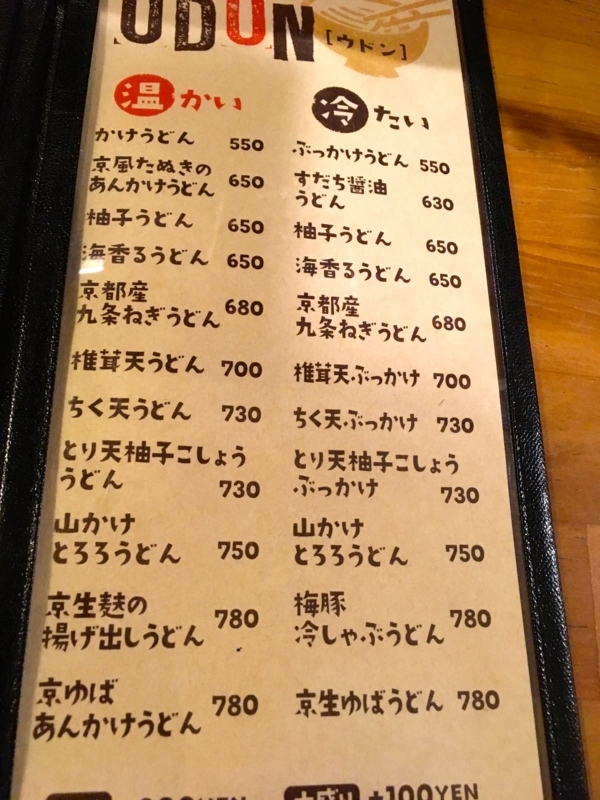 UDUN
[ウドン]
温かい
かけうどん 550
京風たぬきの
あんかけうどん 650
柚子うどん 650
海香るうどん 650
京都産
九条ねぎうどん 680
椎茸天うどん 700
ちく天うどん 730
とり天柚子こしょう
うどん 730
山かけ
とろろうどん 750
京生麩の
揚げ出しうどん 780
京ゆば
あんかけうどん 780
冷たい
ぶっかけうどん 550
すだち醤油
うどん 630
柚子うどん 650
海香るうどん 650
京都産
九条ねぎうどん 680
椎茸天ぶっかけ 700
ちく天ぶっかけ 730
とり天柚子こしょう
ぶっかけ 730
山かけ
とろろうどん 750
梅豚
冷しゃぶうどん 780
京生ゆばうどん 780
大盛り +100YEN